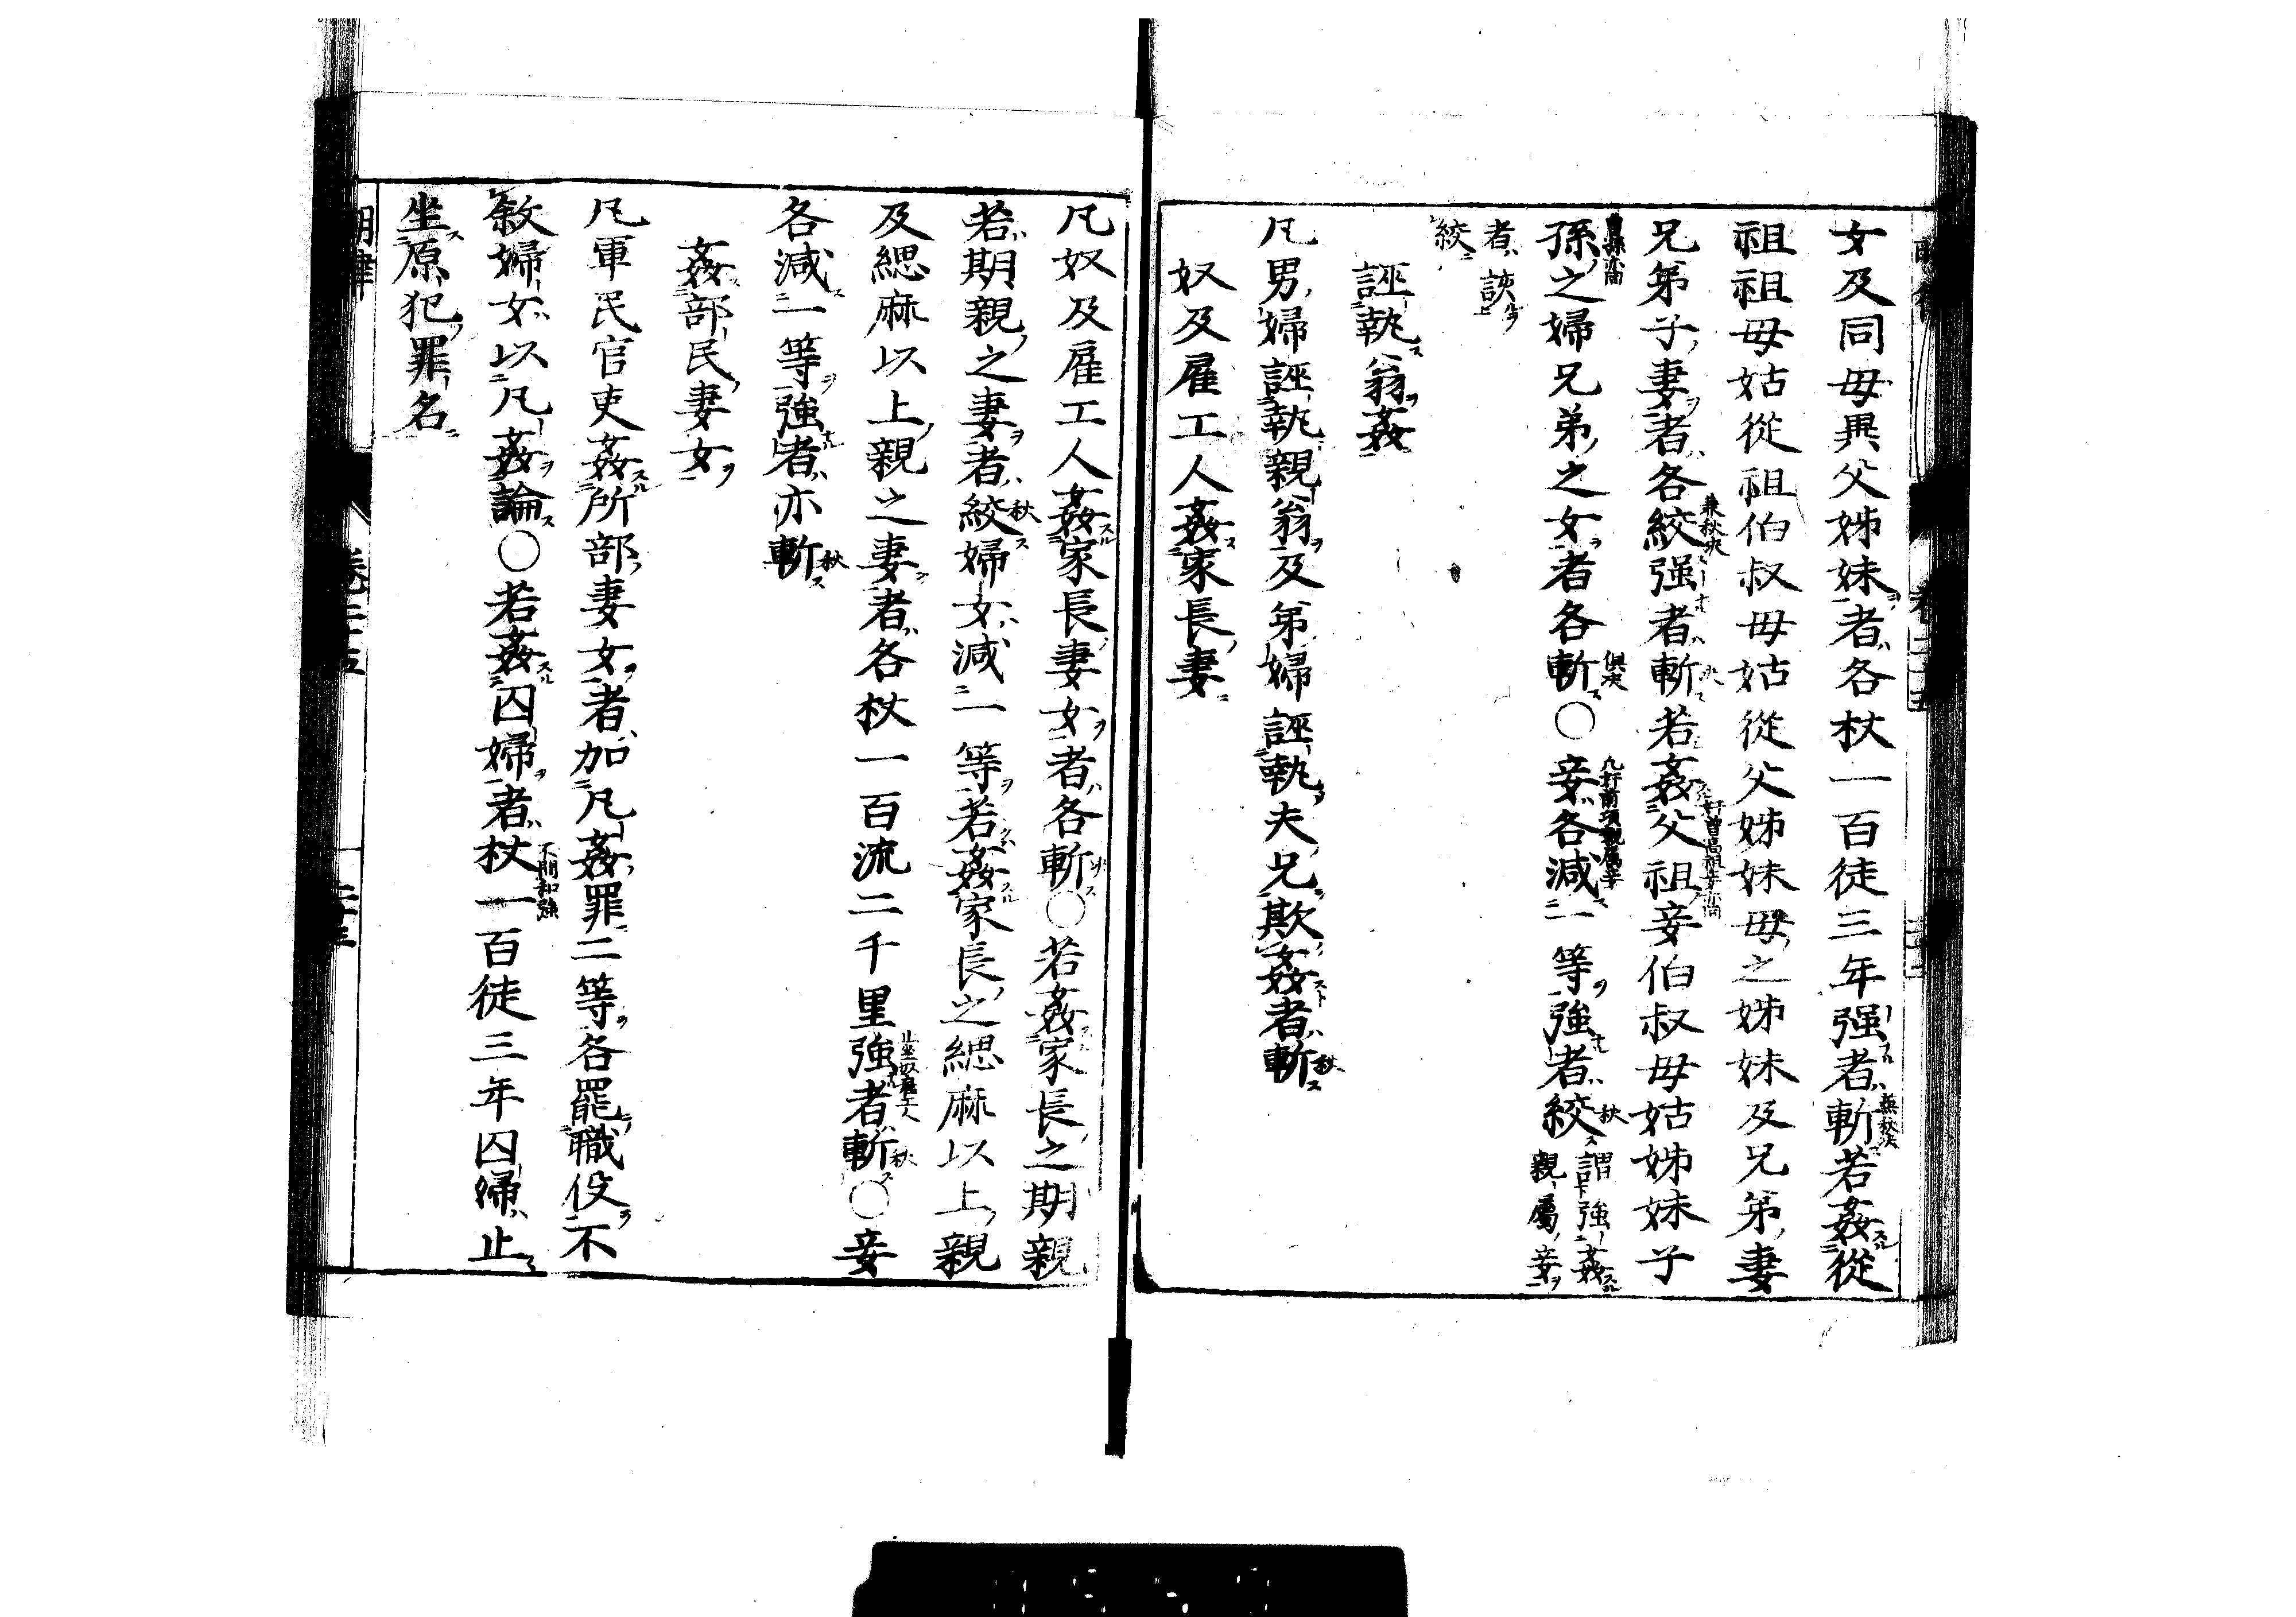 女及同母異父姊妹者各杖一百徒三年强者斬若姦從
祖祖母姑從祖伯叔母姑從父姊妹母之姊妹及兄弟妻
兄弟子妻者各絞强者斬若姦父祖妾伯叔母姑姊妹子
孫之婦兄弟之女者各斬○妾各減一等強者絞
謂強姦親屬妾
者誤
絞
誣執翁姦
凡男婦誣執親翁及弟婦誣執夫兄欺姦者斬
奴及雇工人姦家長妻
凡奴及雇工人姦家長妻女者各斬○若姦家長之期親
若期親之妻者絞婦女減一等若姦家長之緦麻以上親
及緦麻以上親之妻者各杖一百流二千里強者斬○妾
各減一等強者亦斬
姦部民妻女
凡軍民官吏姦所部妻女者加凡姦罪二等各罷職役不
敘婦女以凡姦論○若姦囚婦者杖一百徒三年囚婦止
坐原犯罪名